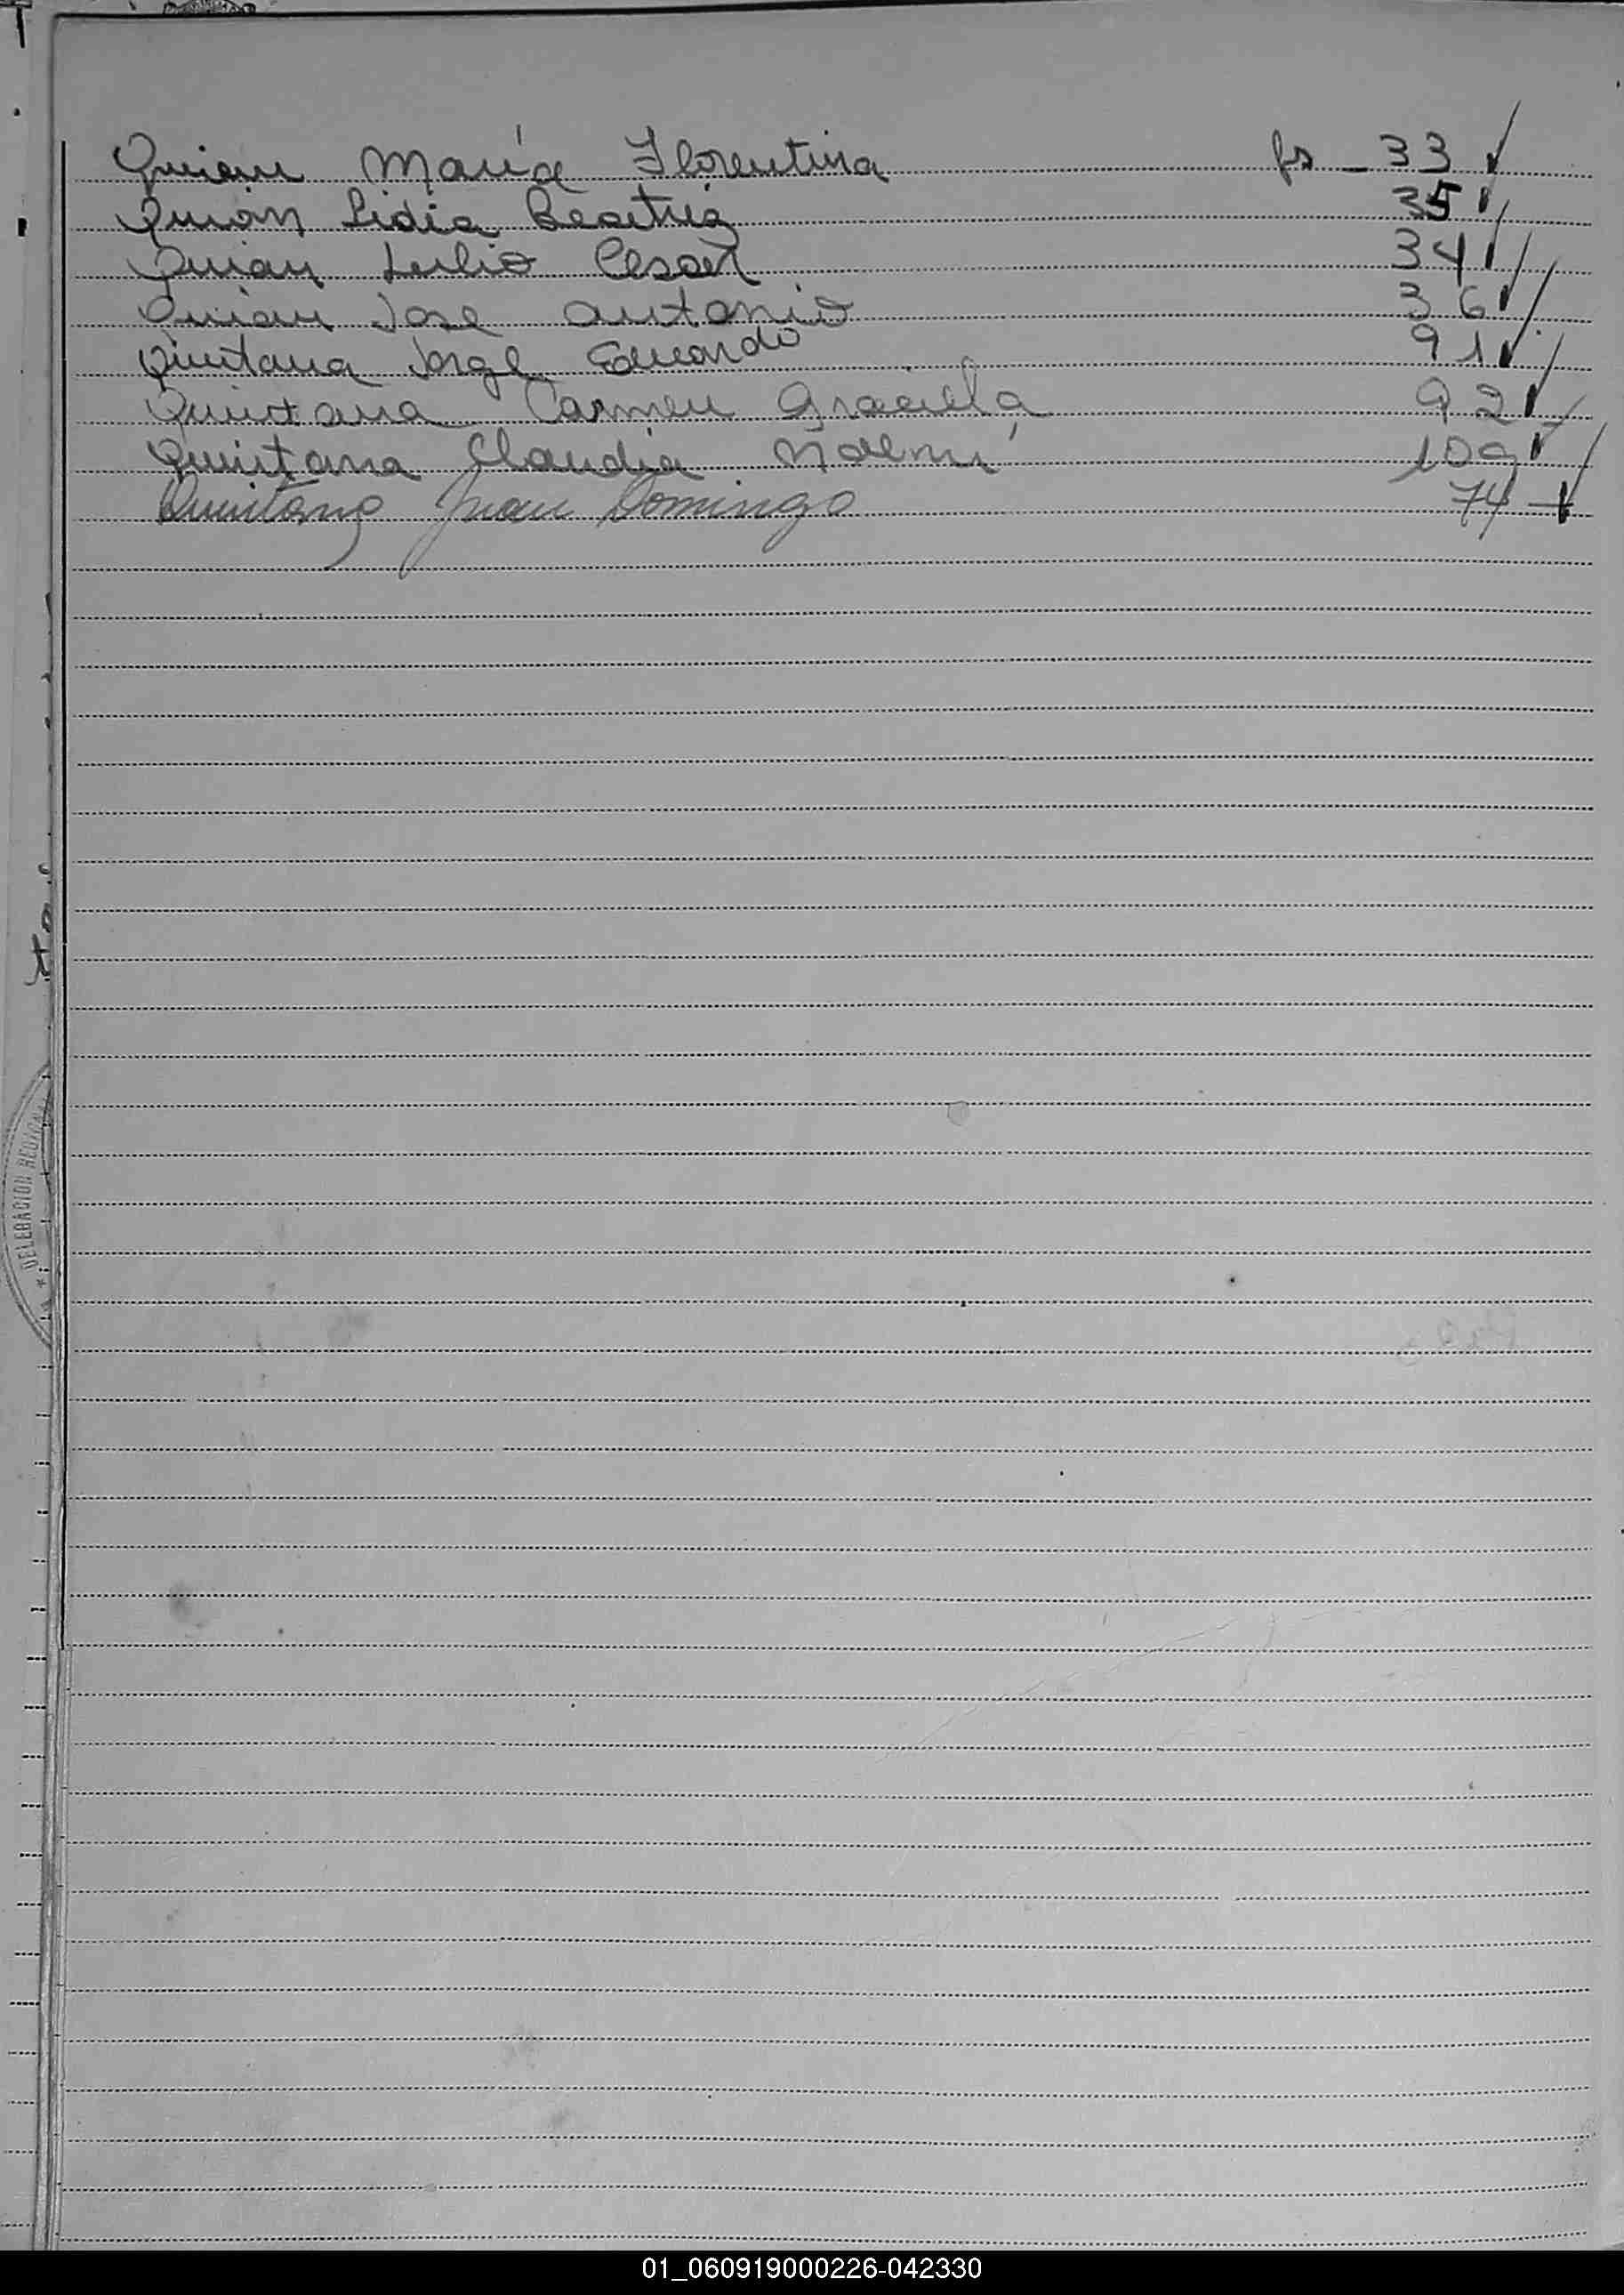 Quian María Florentina fs - 33 ✓
Quian Lidia Beatriz 35 ✓
Quian Julio Cesar 34 ✓
Quian José Antonio 36 ✓
Quintana Jorge Eduardo 91 ✓
Quintana Carmen Graciela 92 ✓
Quintana Claudia Noemí 109 ✓
Quintana Juan Domingo 74 ✓
DELEGACION
01_060919000226-042330